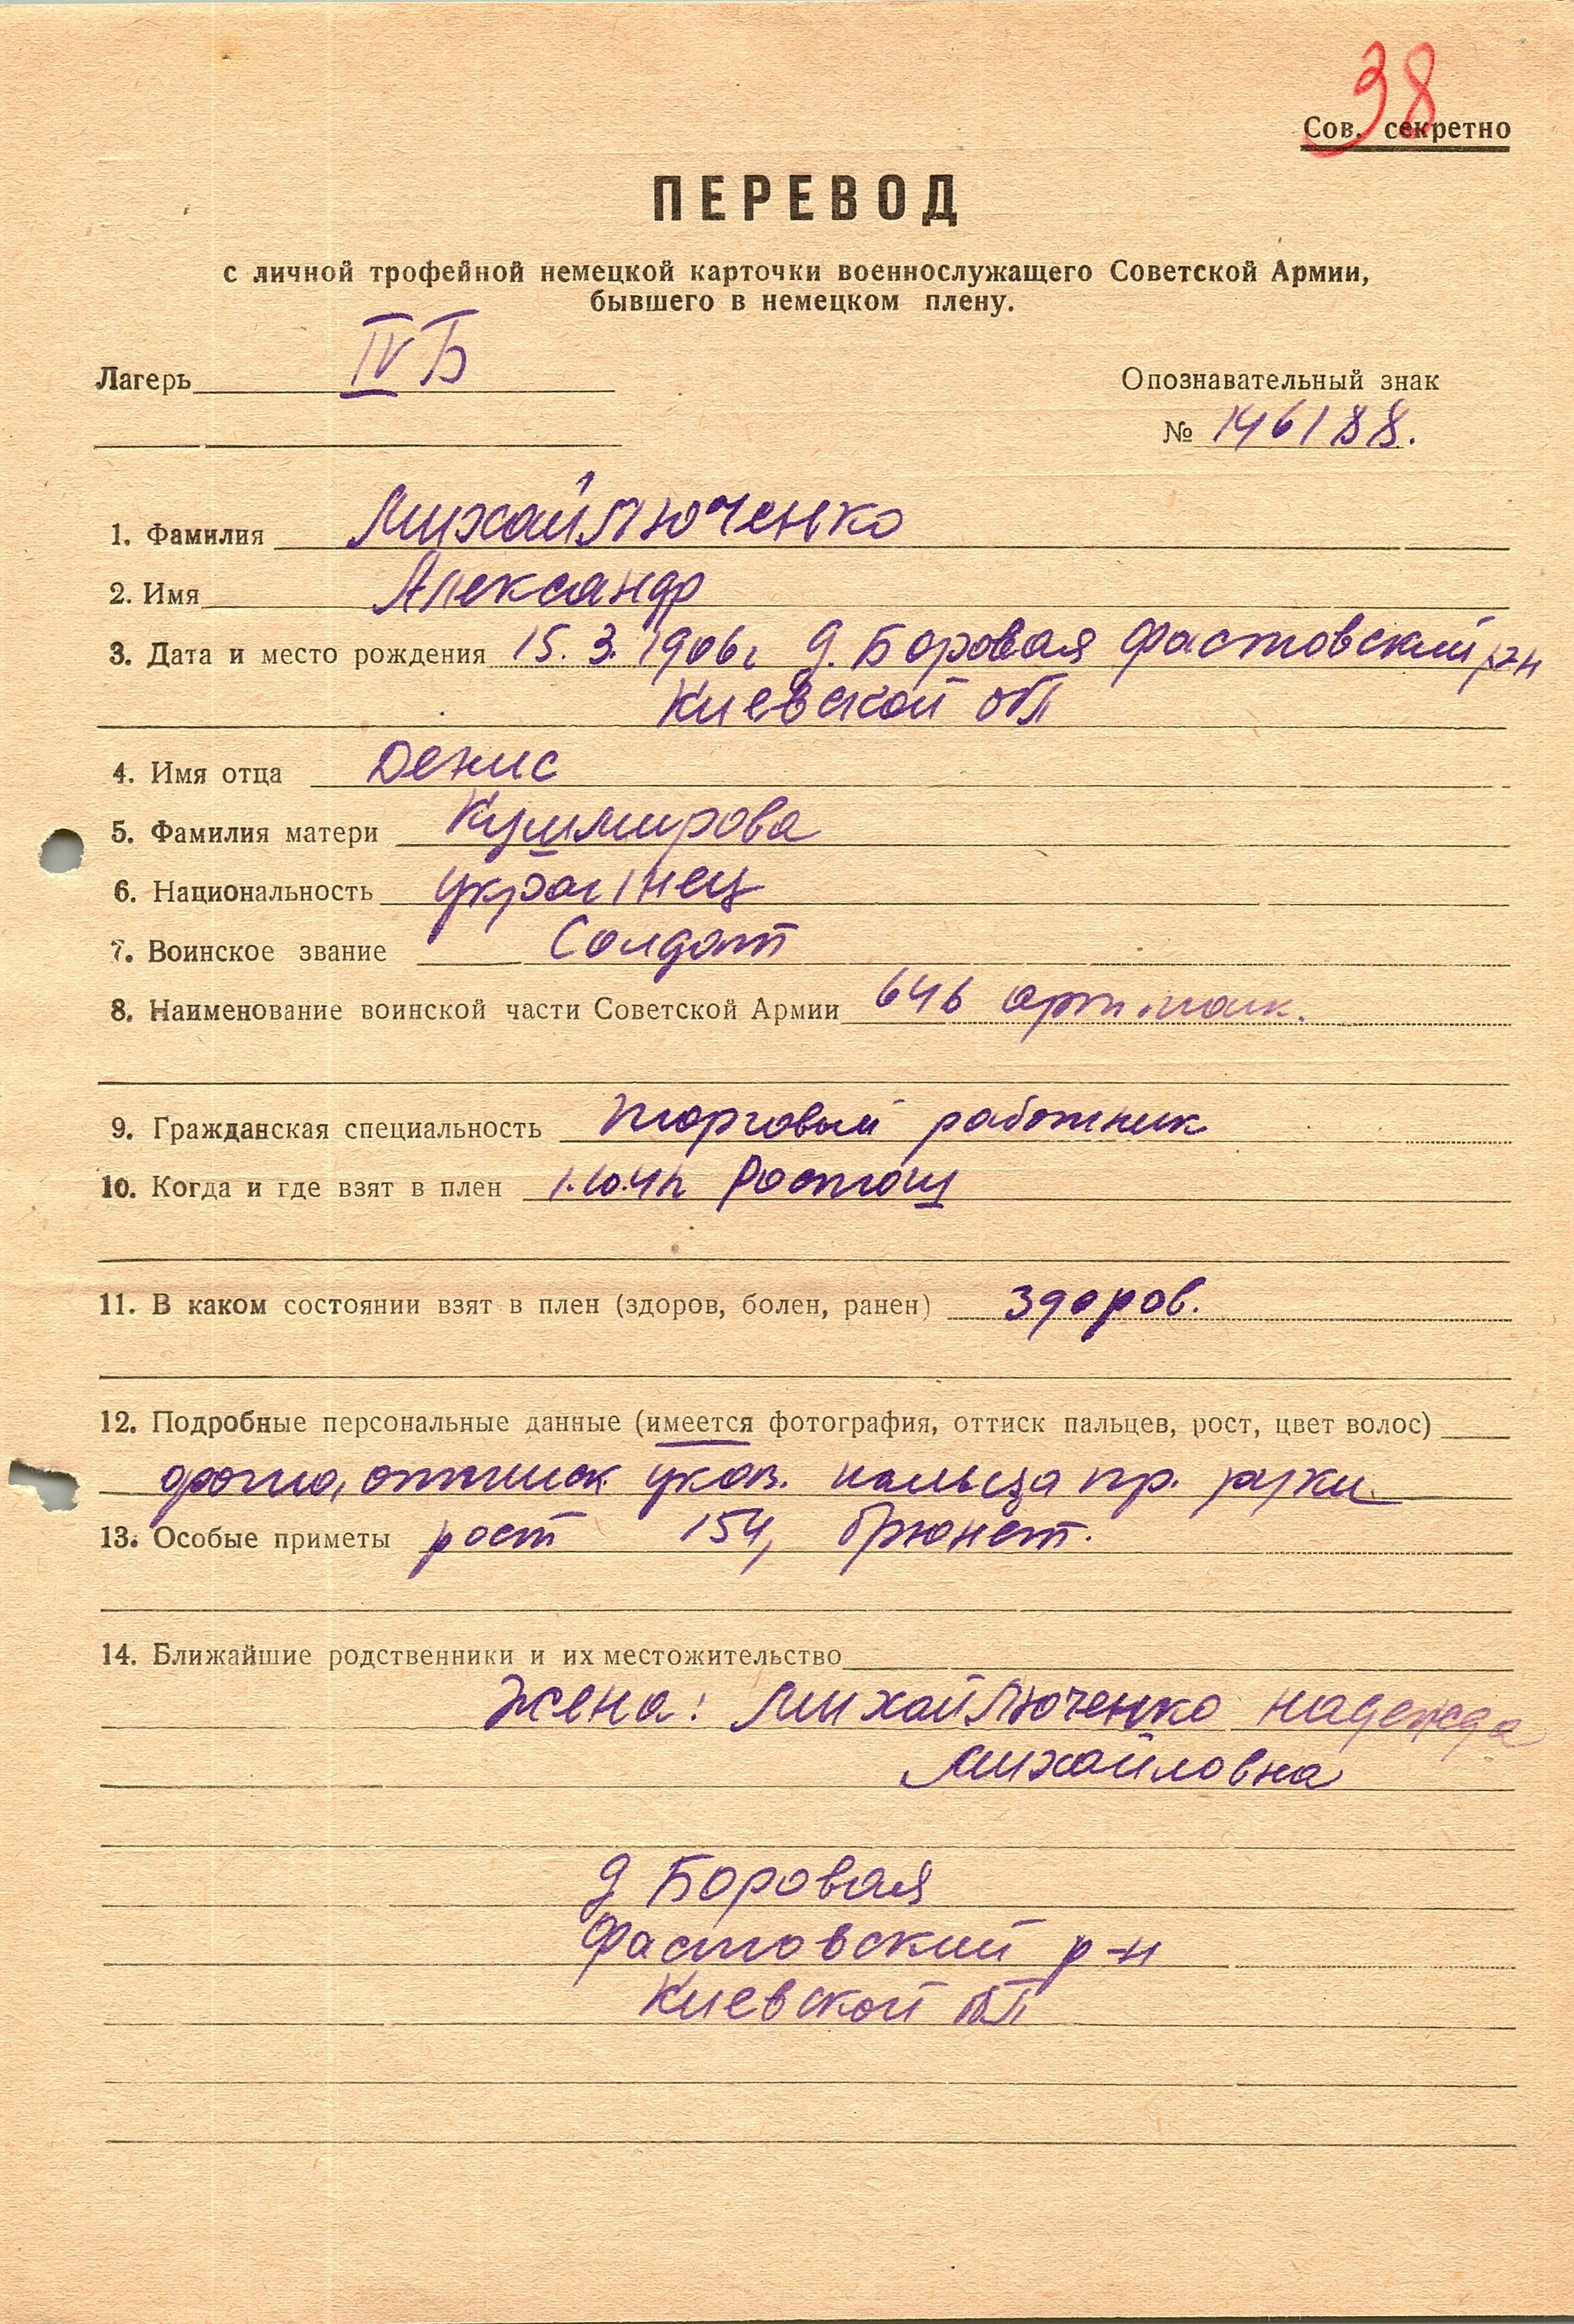 38
Сов. секретно
ПЕРЕВОД
с личной трофейной немецкой карточки военнослужащего Советской Армии,
бывшего в немецком плену.
Лагерь IV Б
Опознавательный знак
№ 146188.
1. Фамилия Михайлюченко
2. Имя Александр
3. Дата и место рождения 15.3.1906г д. Боровая Фастовский р-н
Киевской обл
4. Имя отца Денис
5. Фамилия матери Кушмирова
6. Национальность украінец
7. Воинское звание Солдат
8. Наименование воинской части Советской Армии 646 арт. полк.
9. Гражданская специальность торговый работник
10. Когда и где взят в плен Ростош
11. В каком состоянии взят в плен (здоров, болен, ранен) здоров.
12. Подробные персональные данные (имеется фотография, оттиск пальцев, рост, цвет волос)
фото, оттиск указ. пальца пр. руки
13. Особые приметы рост 154, брюнет.
14. Ближайшие родственники и их местожительство
Жена: Михайлюченко Надежда
Михайловна
д Боровая
Фастовский р-н
Киевской обл